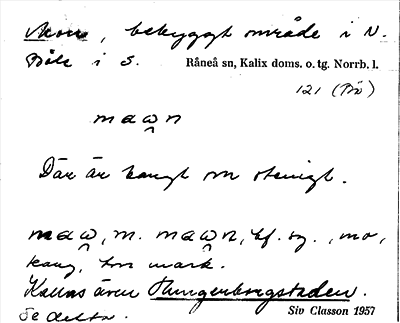 Mon, bebyggt område i N.
Böle i S. Råneå sn, Kalix doms. o. tg. Norrb. l.
121 (Bö)
maw̭n
Där är kangt om stenigt.
maw̭, m. maw̭n, bf. sg., mo,
kang, torr mark.
Kallas även Slungenborgstaden.
Se detta. Siv Classon 1957